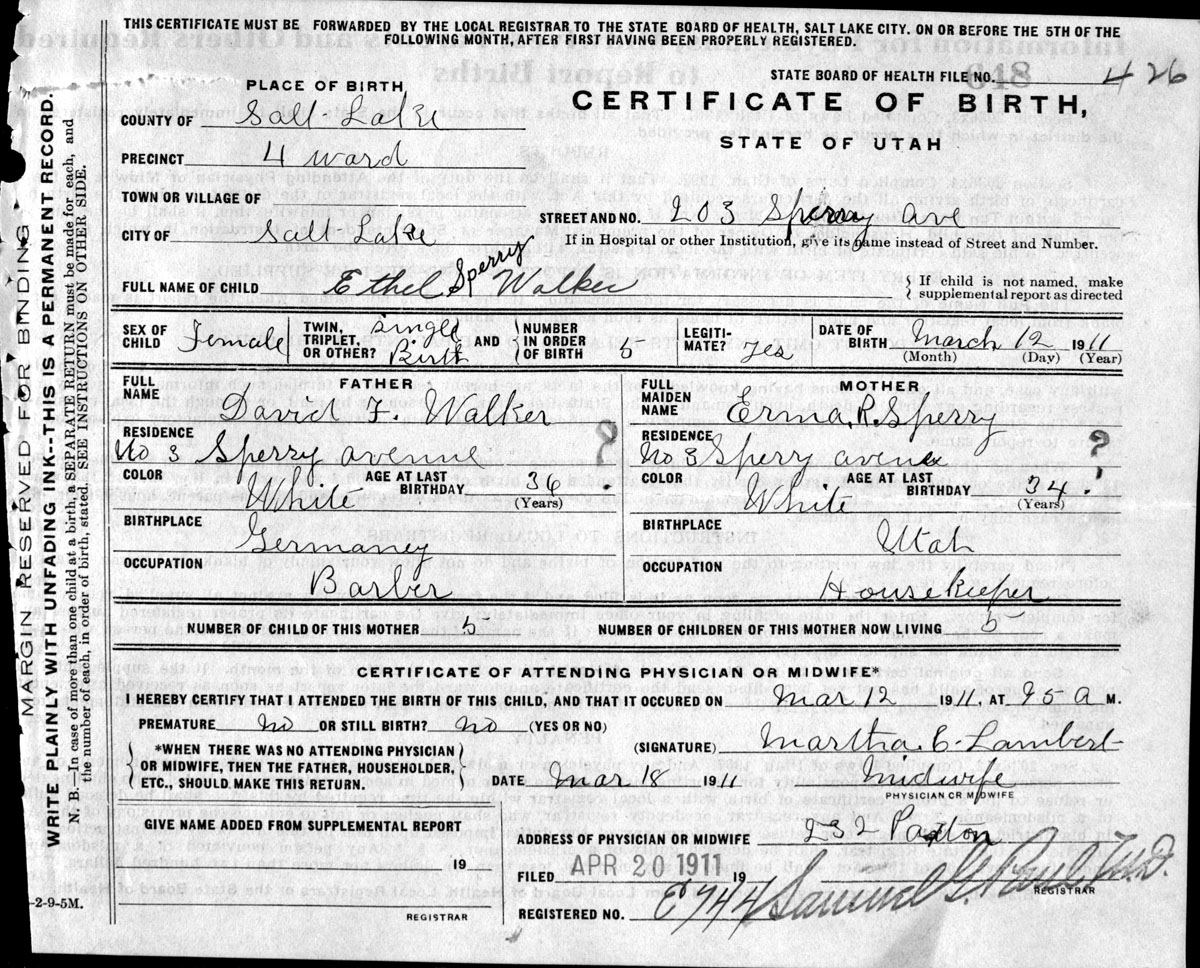 THIS CERTIFICATE MUST BE FORWARDED BY THE LOCAL REGISTRAR TO THE STATE BOARD OF HEALTH, SALT LAKE CITY. ON OR BEFORE THE 5TH OF THE
FOLLOWING MONTH, AFTER FIRST HAVING BEEN PROPERLY REGISTERED.
STATE BOARD OF HEALTH FILE NO. 426
PLACE OF BIRTH
CERTIFICATE OF BIRTH,
COUNTY OF Salt Lake
STATE OF UTAH
PRECINCT 4 ward
TOWN OR VILLAGE OF
STREET AND NO. 203 Sperry Ave
CITY OF Salt Lake
If in Hospital or other Institution, give its name instead of Street and Number.
FULL NAME OF CHILD Ethel Sperry Walker
If child is not named, make
supplemental report as directed
SEX OF CHILD Female
TWIN, TRIPLET, OR OTHER? Single Birth AND
NUMBER IN ORDER OF BIRTH 5
LEGITI-MATE? Yes
DATE OF BIRTH March 12 1911
(Month) (Day) (Year)
FATHER
FULL NAME David F. Walker
RESIDENCE No 3 Sperry avenue ?
COLOR White AGE AT LAST BIRTHDAY 36 (Years)
BIRTHPLACE Germaney
OCCUPATION Barber
MOTHER
FULL MAIDEN NAME Erma. R. Sperry
RESIDENCE No 3 Sperry avenue ?
COLOR White AGE AT LAST BIRTHDAY 34. (Years)
BIRTHPLACE Utah
OCCUPATION Housekeeper
NUMBER OF CHILD OF THIS MOTHER 5 NUMBER OF CHILDREN OF THIS MOTHER NOW LIVING 5
CERTIFICATE OF ATTENDING PHYSICIAN OR MIDWIFE*
I HEREBY CERTIFY THAT I ATTENDED THE BIRTH OF THIS CHILD, AND THAT IT OCCURED ON Mar 12 1911, AT 95 a M.
PREMATURE No OR STILL BIRTH? No (YES OR NO)
(SIGNATURE) Martha. E. Lambert
*WHEN THERE WAS NO ATTENDING PHYSICIAN
OR MIDWIFE, THEN THE FATHER, HOUSEHOLDER,
ETC., SHOULD MAKE THIS RETURN.
DATE Mar 18 1911 Midwife
PHYSICIAN OR MIDWIFE
GIVE NAME ADDED FROM SUPPLEMENTAL REPORT
19
REGISTRAR
ADDRESS OF PHYSICIAN OR MIDWIFE 232 Paxton
FILED APR 20 1911 19
REGISTRAR
REGISTERED NO. E744 Samuel G. Paul M.D.
-2-9-5M.
MARGIN RESERVED FOR BINDING
WRITE PLAINLY WITH UNFADING INK--THIS IS A PERMANENT RECORD.
N. B.—In case of more than one child at a birth, a SEPARATE RETURN must be made for each, and
the number of each, in order of birth, stated. SEE INSTRUCTIONS ON OTHER SIDE.